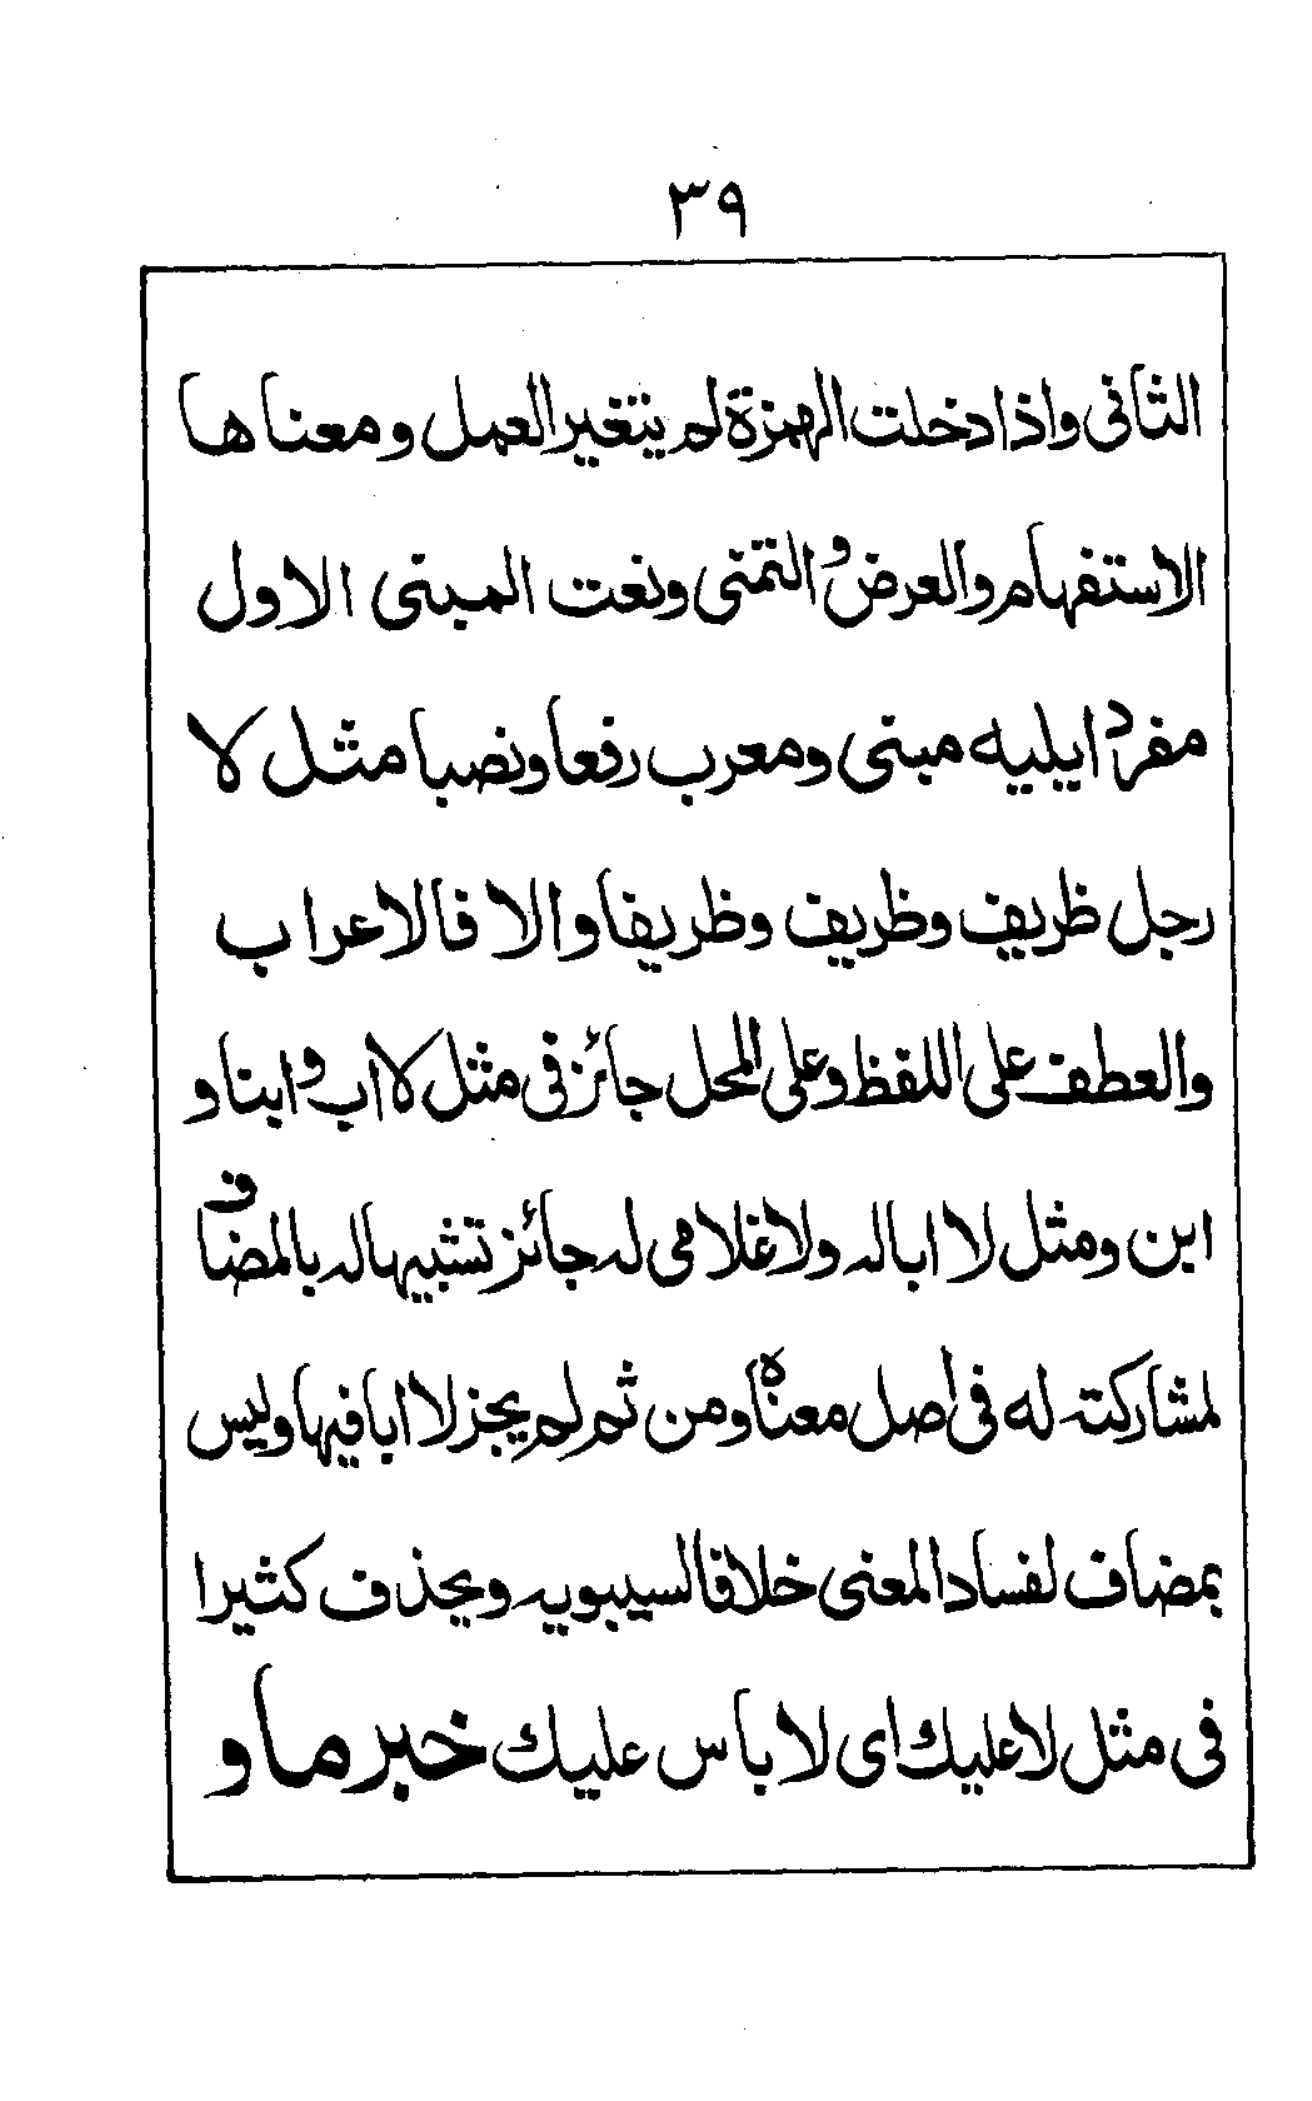 ٣٩
الثانى واذا دخلت الهمزة لم يتغير العمل ومعناها
الاستفهام والعرض والتمنى ونعت المبنى الاول
مفردا يليه مبنى ومعرب رفعا ونصبا مثل لا
رجل ظريف وظريف وظريفا والا فالاعراب
والعطف على اللفظ وعلى المحل جائز فى مثل لا اب وابنا و
ابن ومثل لا اباله ولا غلامى له جائز تشبيهاله بالمضاف
لمشاركته له فى اصل معناه ومن ثم لم يجز لا ابا فيها وليس
بمضاف لفساد المعنى خلافا لسيبويه ويحذف كثيرا
فى مثل لا عليك اى لا باس عليك خبر ما و